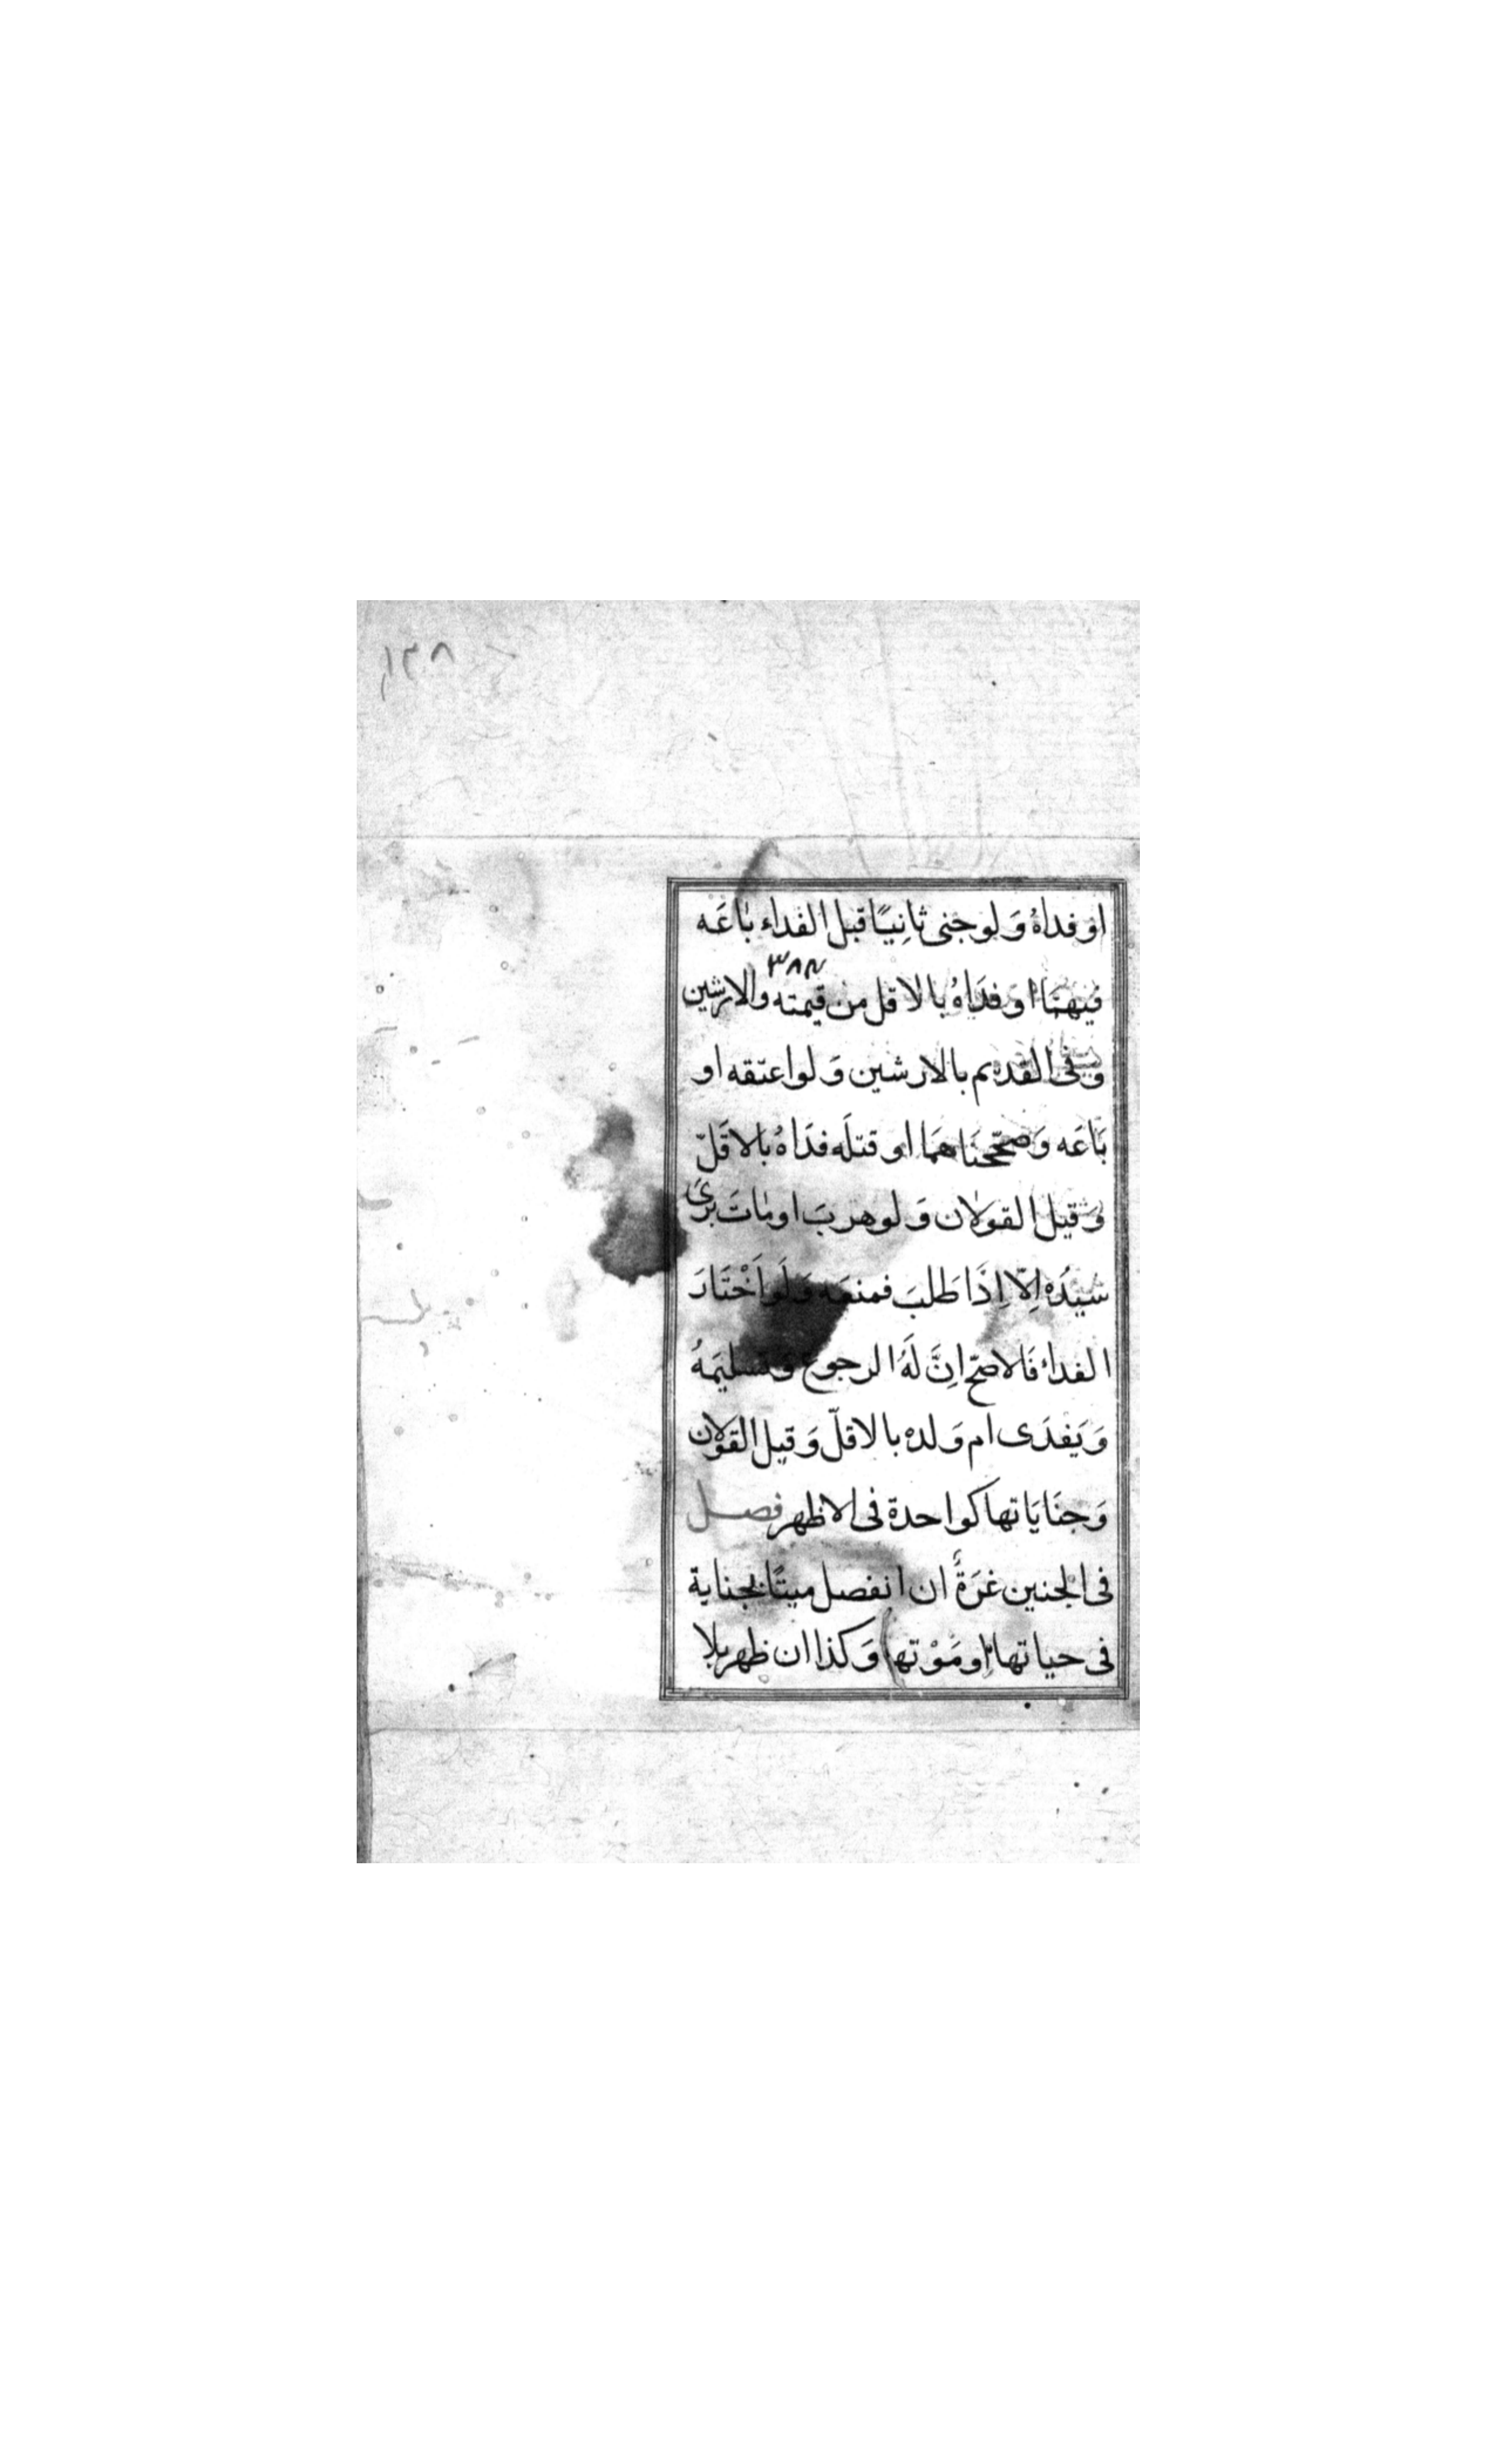 ١٣٨
او فداهُ وَلو جنى ثانِيًا قبل الفداء باعَه
٣٨٨
فيهمَا او فدَاهُ بالاقل من قيمته والارشين
وَفى القديم بالارشين وَلو اعتقه او
بَاعَه وَصحّحنَاهمَا او قتلَه فدَاهُ بالاقَلّ
وَقيل القولان وَلو هربَ او مَاتَ برئَ
سَيّدُه اِلّا اِذَا طَلبَ فمنعَه وَلَو اَخْتَارَ
الفداء فَالاصحّ اِنَّ لَهُ الرجوع وَتسليمَهُ
وَيَفدَى ام وَلده بالاقلّ وَقيل القولان
وَجنَايَاتها كواحدة فى الاظهر فصل
فى الجنين غرَةٌ ان انفصل ميتًا بجناية
فى حياتها او مَوْتها وَكذا ان ظهر بلا